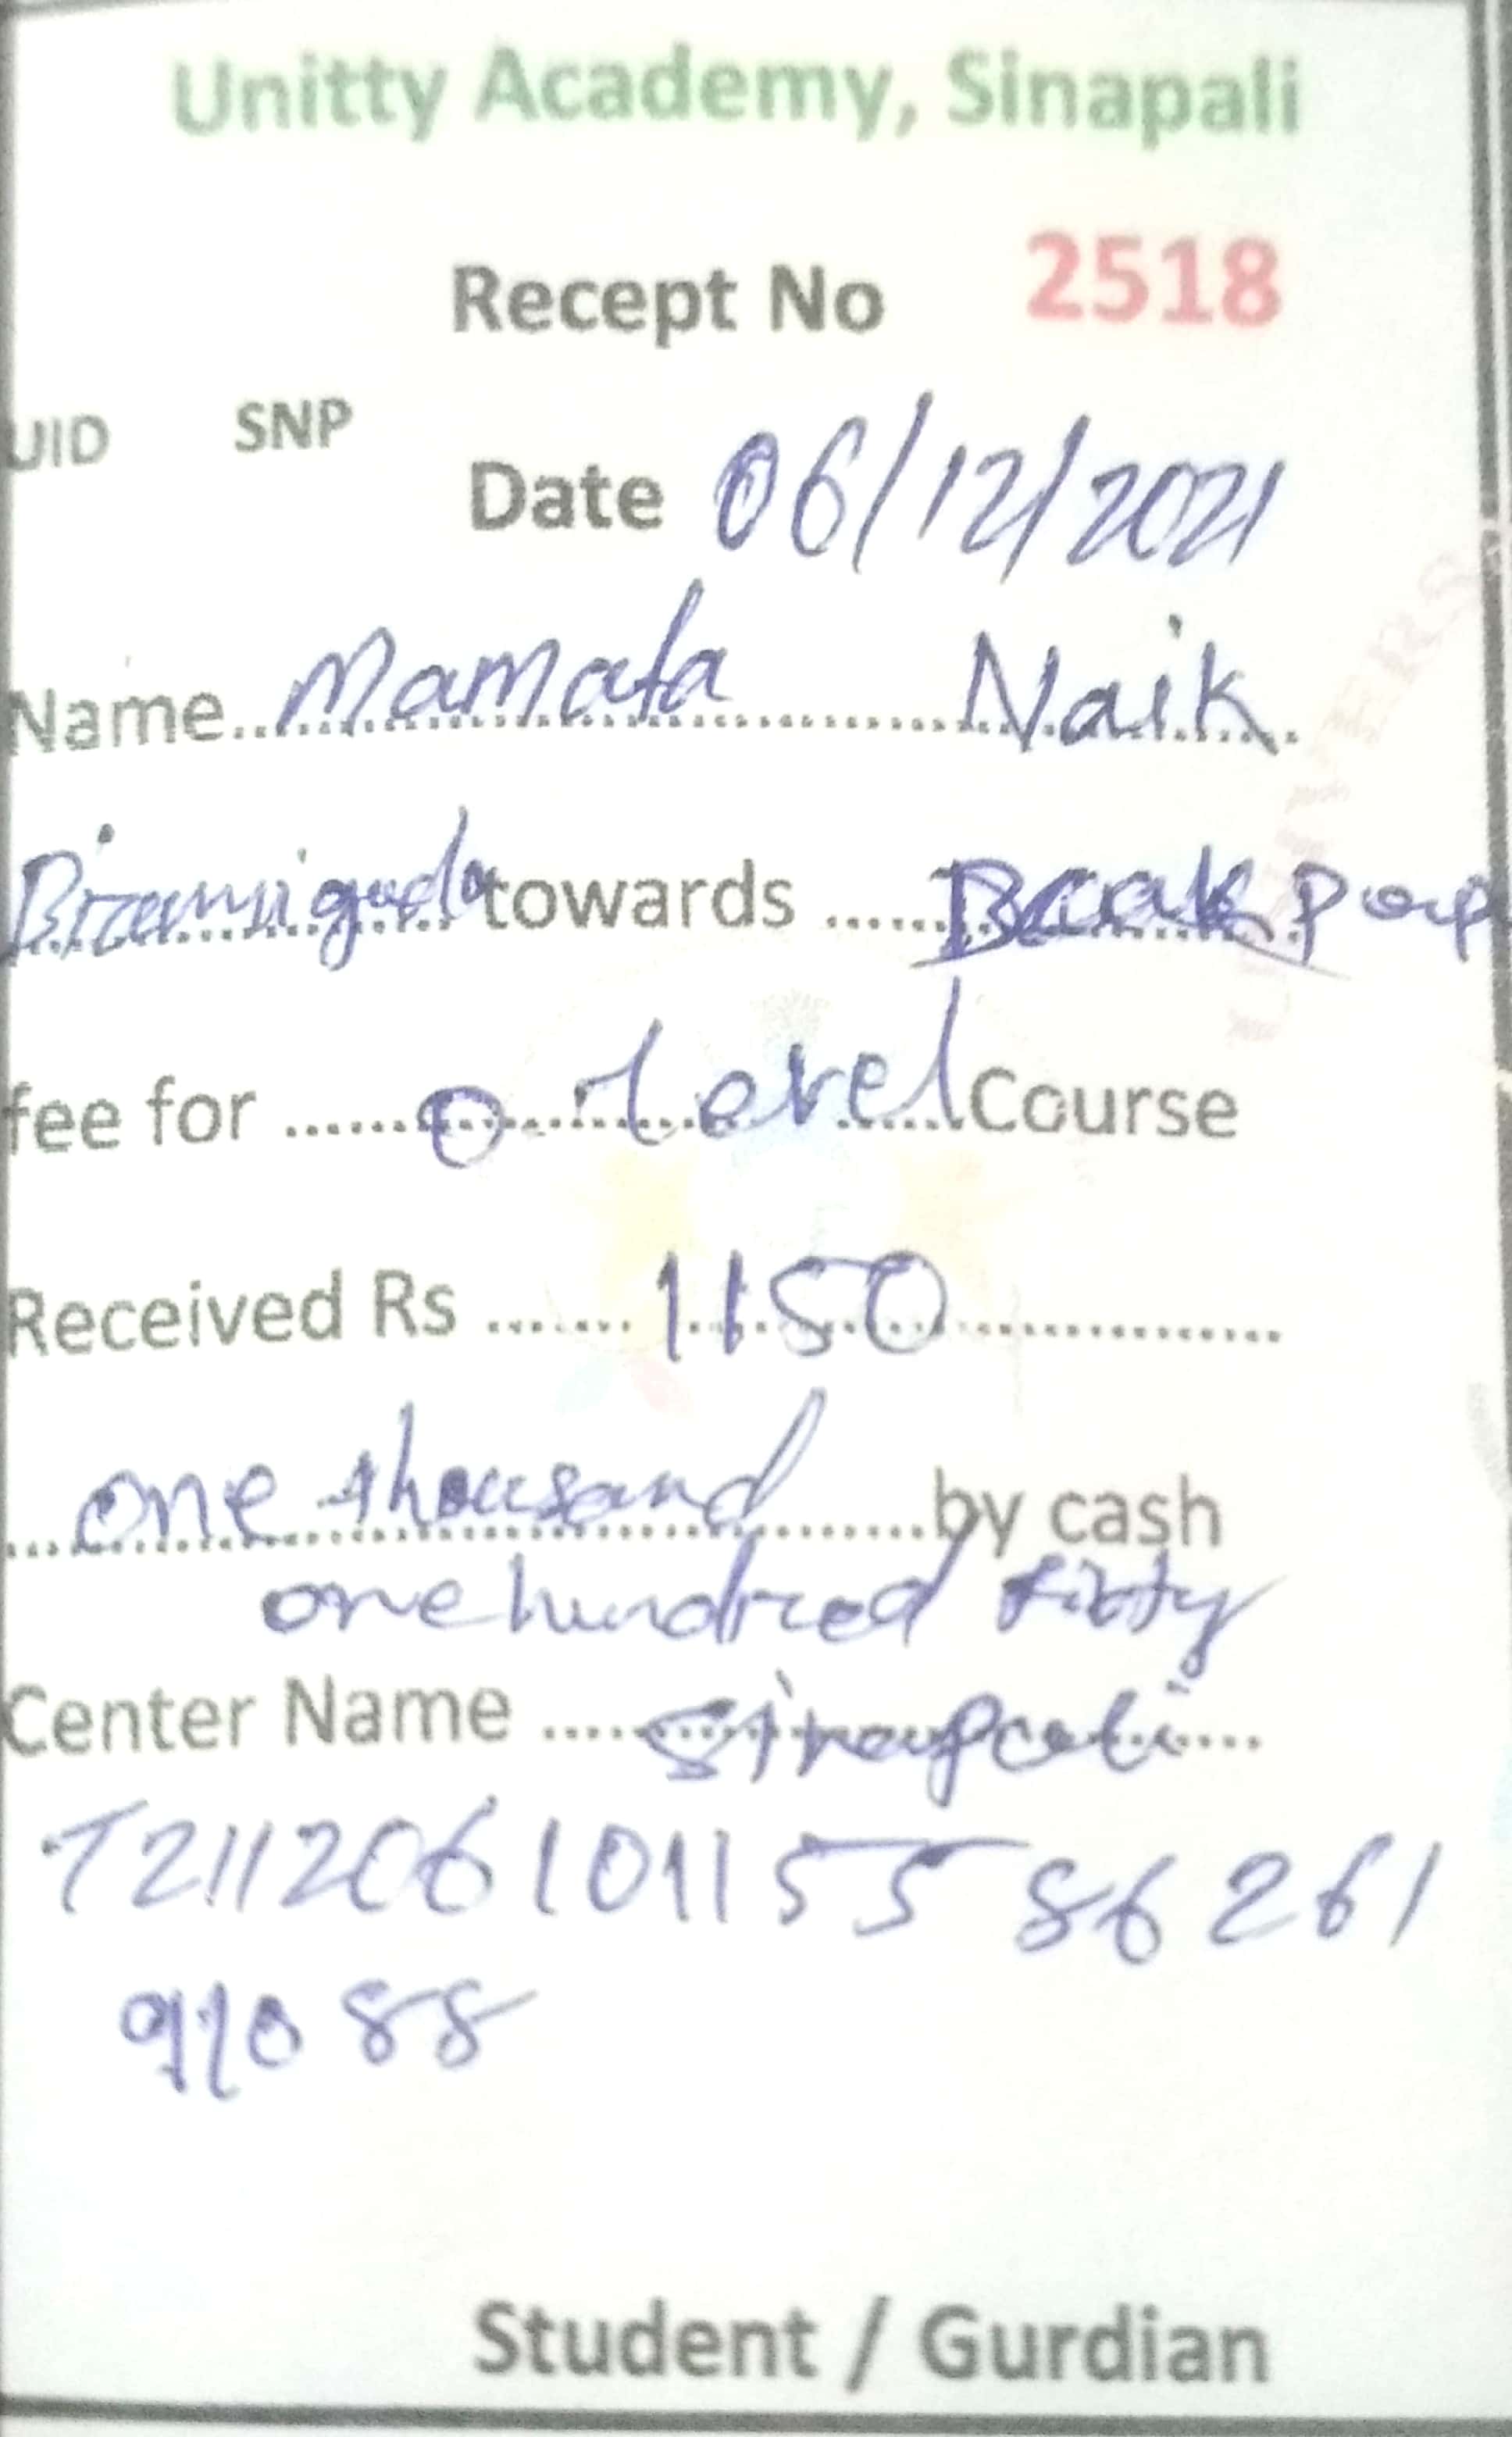 Unitty Academy, Sinapali
Recept No 2518
UID SNP
Date 06/12/2021
Name Mamata Naik
towards Back pap
fee for O Level Course
Received Rs 1150
one thousand by cash
one hundred fifty
Center Name Sinapali
T2112061011555 86261
91088
Student / Gurdian